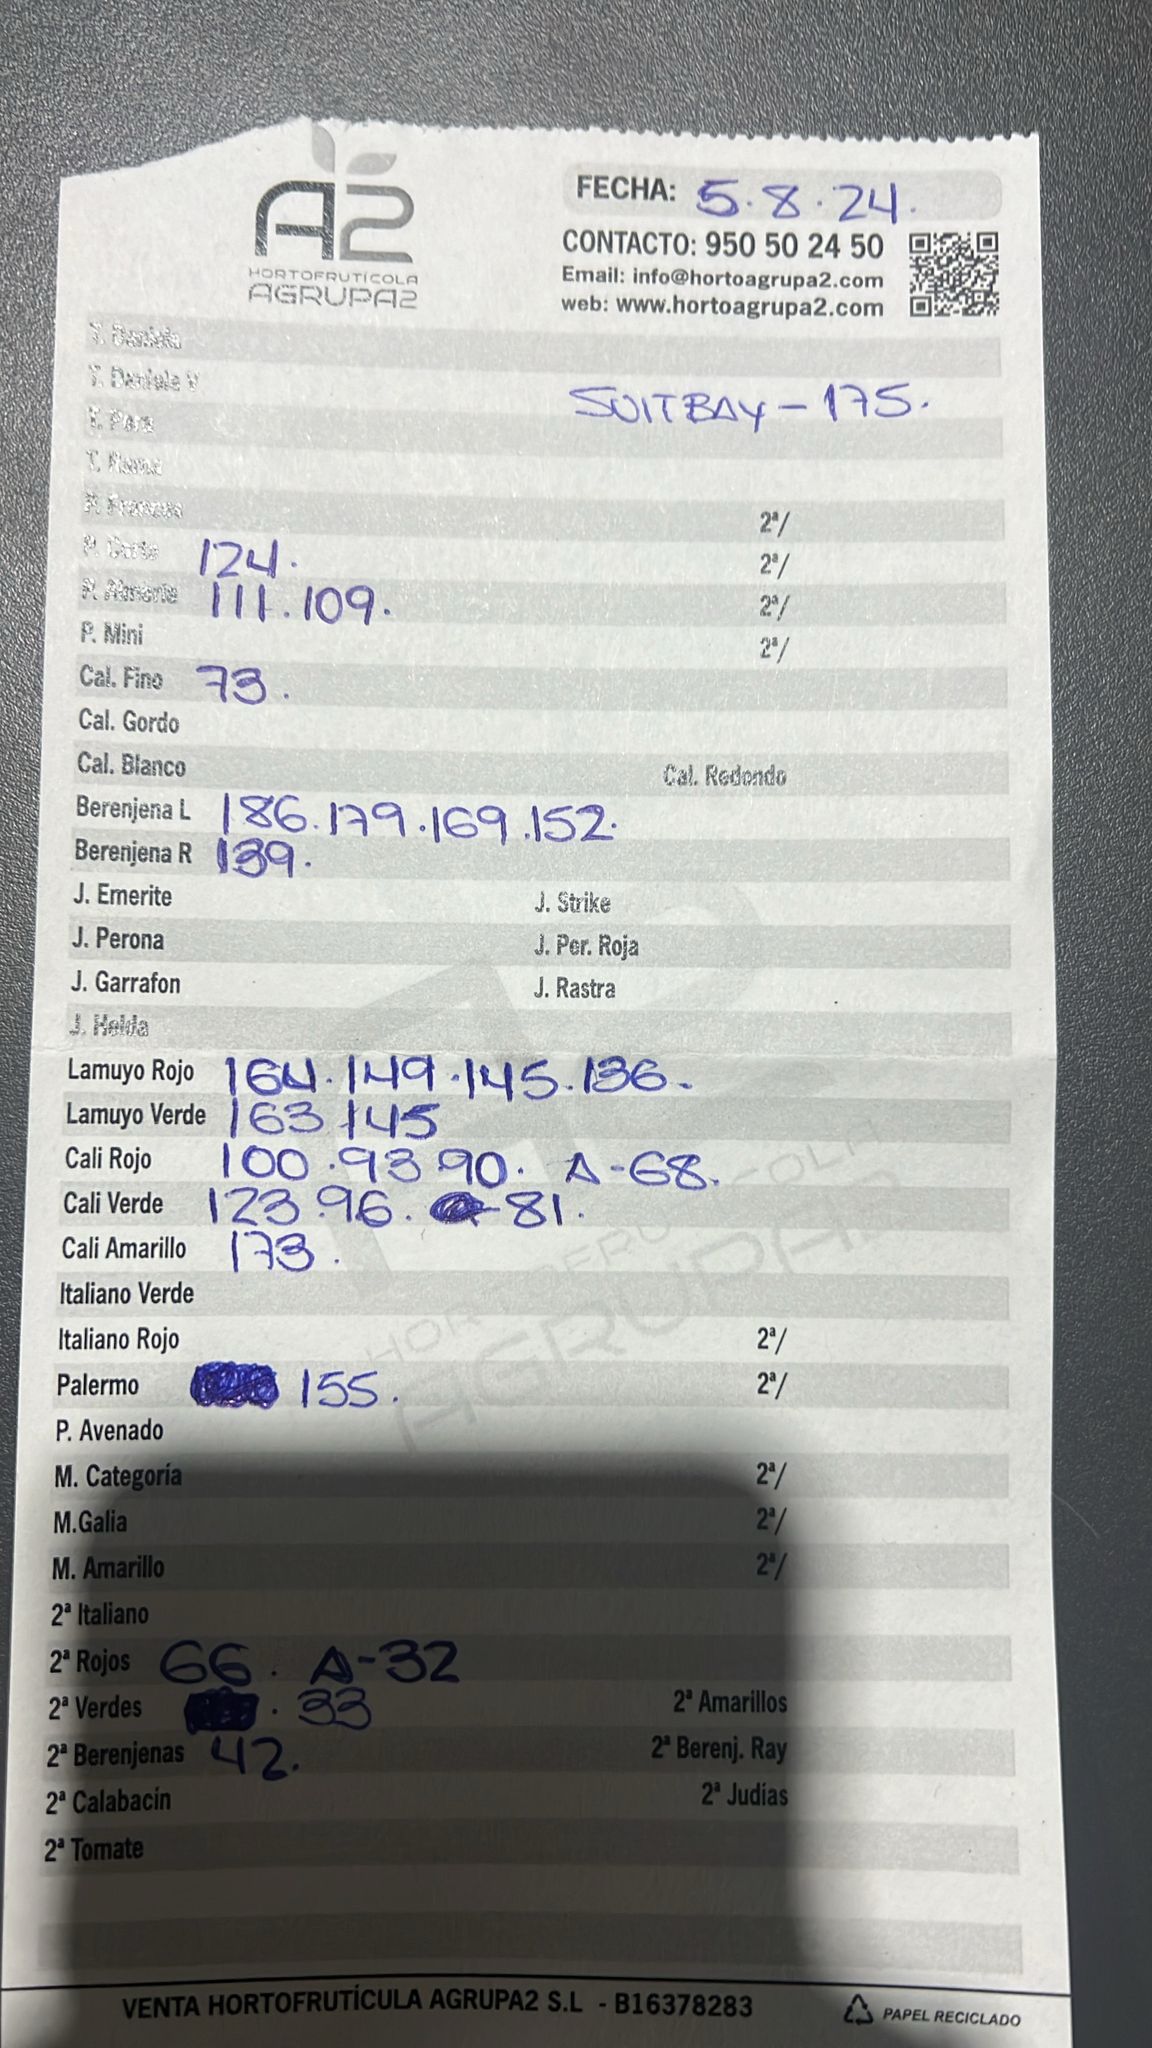 A2
HORTOFRUTÍCOLA
AGRUPA2
FECHA: 5.8.24.
CONTACTO: 950 50 24 50
Email: info@hortoagrupa2.com
web: www.hortoagrupa2.com
T. Daniela
T. Daniela V
SUITBAY - 175.
T. Pera
T. Rama
P. Frances 2ª/
P. Corto 124. 2ª/
P. Almeria 111.109. 2ª/
P. Mini 2ª/
Cal. Fino 73.
Cal. Gordo
Cal. Blanco Cal. Redondo
Berenjena L 186.179.169.152.
Berenjena R 139.
J. Emerite J. Strike
J. Perona J. Per. Roja
J. Garrafon J. Rastra
J. Helda
Lamuyo Rojo 164.149.145.136.
Lamuyo Verde 163.145
Cali Rojo 100.93.90. A-68.
Cali Verde 123.96. -81.
Cali Amarillo 173.
Italiano Verde
Italiano Rojo 2ª/
Palermo 155. 2ª/
P. Avenado
M. Categoría 2ª/
M.Galia 2ª/
M. Amarillo 2ª/
2ª Italiano
2ª Rojos 66. A-32
2ª Verdes . 33 2ª Amarillos
2ª Berenjenas 42. 2ª Berenj. Ray
2ª Calabacín 2ª Judías
2ª Tomate
VENTA HORTOFRUTÍCULA AGRUPA2 S.L - B16378283 PAPEL RECICLADO